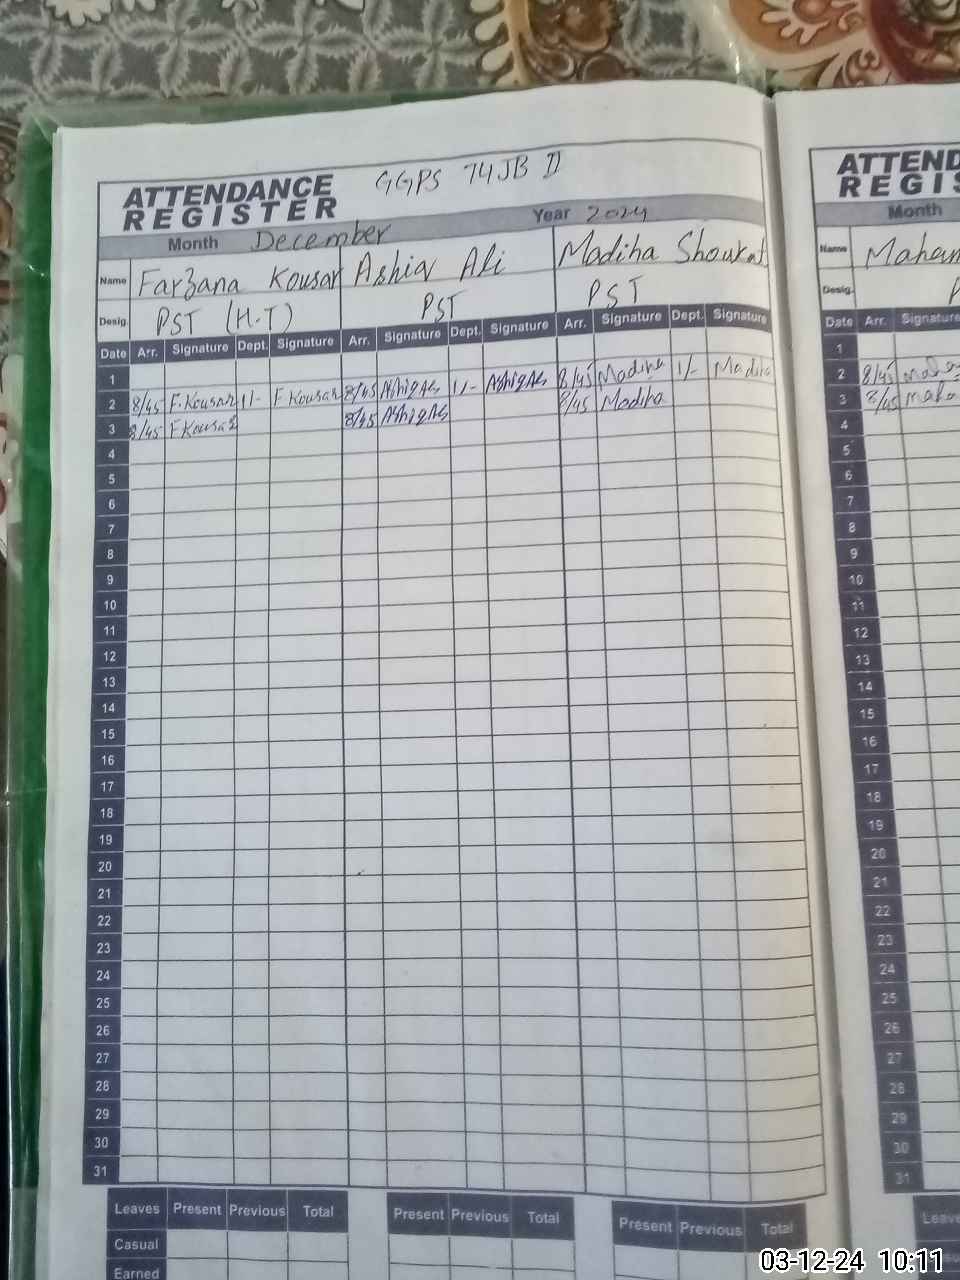 ATTENDANCE REGISTER GGPS 74JB II
Month December Year 2024
Name Farzana Kousar Ashia Ali Madiha Shoukat
Desig. PST (H.T) PST PST
Date Arr. Signature Dept. Signature Arr. Signature Dept. Signature Arr. Signature Dept. Signature
1
2 8/45 F.Kousar 1/- F Kousar 8/45 AshigAli 1/- AshigAli 8/45 Madiha 1/- Madiha
3 8/45 F Kousar 8/45 AshigAli 8/45 Madiha
4
5
6
7
8
9
10
11
12
13
14
15
16
17
18
19
20
21
22
23
24
25
26
27
28
29
30
31
Leaves Present Previous Total Present Previous Total Present Previous Total
Casual
Earned
ATTEND
REGIS
Month
Name Maham
Desig. P
Date Arr. Signature
1
2 8/45
3 8/45 Maha
4
5
6
7
8
9
10
11
12
13
14
15
16
17
18
19
20
21
22
23
24
25
26
27
28
29
30
31
Leave
03-12-24 10:11